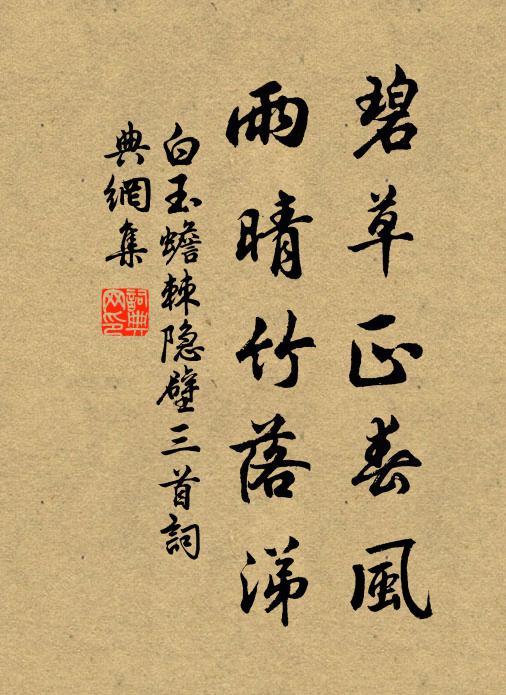 碧草正春風
雨晴竹落涕
白玉蟾棘隐壁三首詞
典網集
詞典
网印